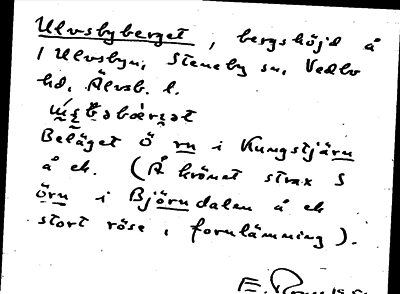 Ulvsbyberget, bergshöjd å
1 Ulvsbyn, Steneby sn, Vedbo
hd, Älvsb. l.
Beläget Ö rn i Kungstjärn
å ek. (Å krönet strax S
örn i Björndalen å ek
stort röse, fornlämning).
E.